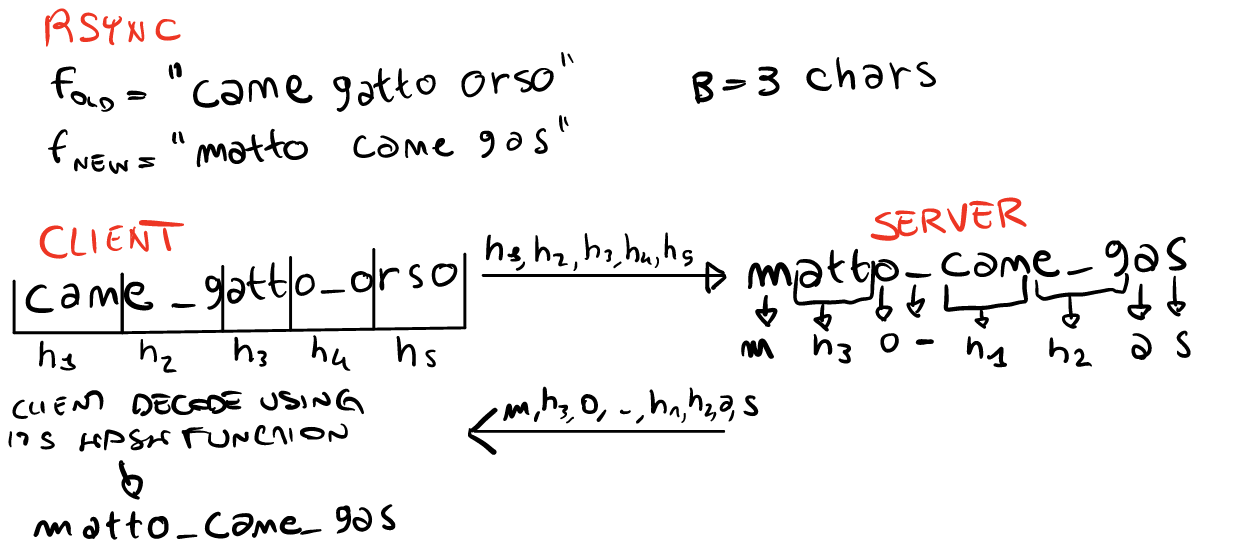 RSYNC
fOLD = "came gatto orso"
B = 3 chars
fNEW = "matto came gas"
CLIENT
SERVER
came_gatto_orso
h1, h2, h3, h4, h5
matto_came_gas
h1 h2 h3 h4 h5
m h3 o - h1 h2 a s
CLIENT DECODE USING
ITS HASH FUNCTION
m, h3, o, _, h1, h2, a, s
matto_came_gas